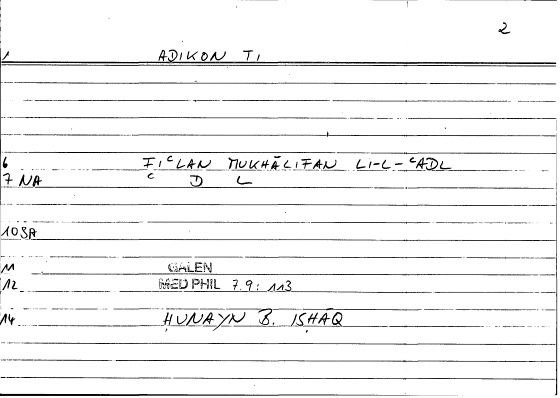 2
1 ADIKON TI
6 FIᶜLAN MUKHĀLIFAN LI-L-ᶜADL
7 NA ᶜ D L
10 SA
11 GALEN
12 MED PHIL 7.9: 113
14 ḤUNAYN B. ISḤĀQ